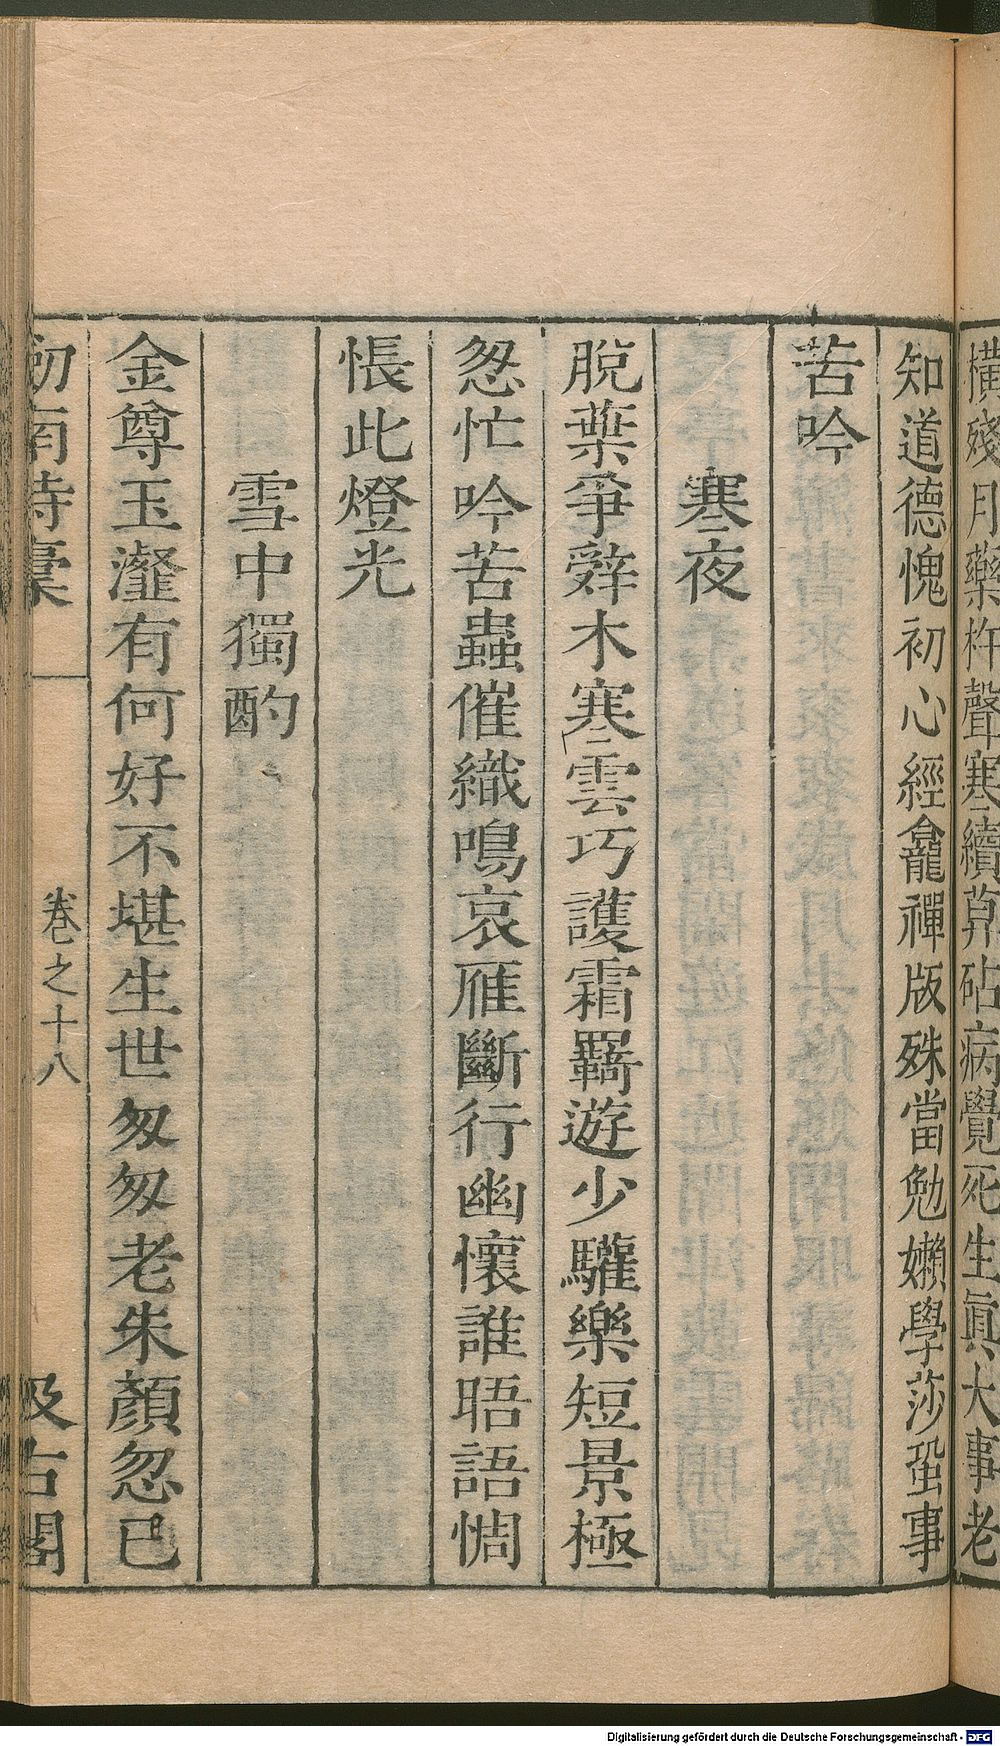 橫殘月藥杵聲寒續莫砧病覺死生眞大事老
知道德愧初心經龕禪版殊當勉嬾學莎蛩事
苦吟
寒夜
脫葉爭辭木寒雲巧護霜羇遊少驩樂短景極
怱忙吟苦蟲催織鳴哀雁斷行幽懷誰晤語惆
悵此燈光
雪中獨酌
金尊玉瀣有何好不堪生世匆匆老朱顏忽已
劒南詩稾
卷之十八
汲古閣
Digitalisierung gefördert durch die Deutsche Forschungsgemeinschaft - DFG